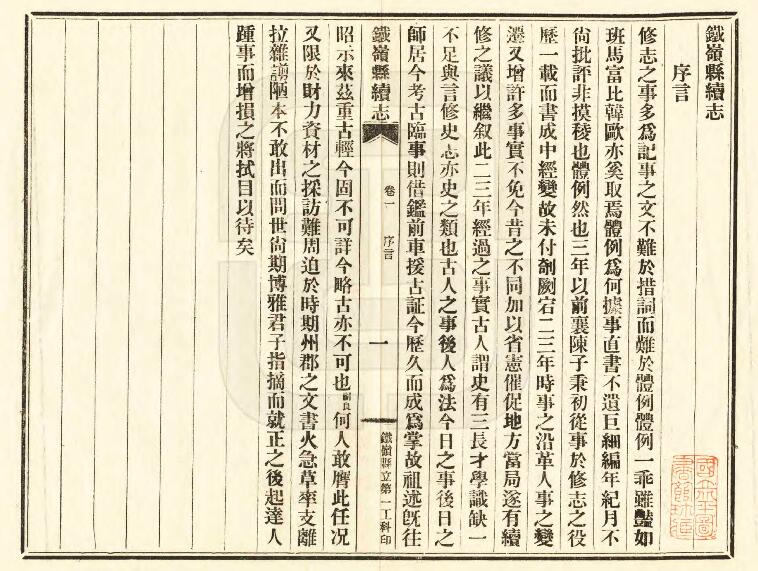 鐵嶺縣續志
序言
修志之事多爲記事之文不難於措詞而難於體例體例一乖雖豔如
班馬富比韓歐亦奚取焉體例爲何據事直書不遺巨細編年紀月不
尙批評非摸稜也體例然也三年以前襄陳子秉初從事於修志之役
歷一載而書成中經變故未付剞劂宕二三年時事之沿革人事之變
遷又增許多事實不免今昔之不同加以省憲催促地方當局遂有續
修之議以繼叙此二三年經過之事實古人謂史有三長才學識缺一
不足與言修史志亦史之類也古人之事後人爲法今日之事後日之
師居今考古臨事則借鑑前車援古証今歷久而成爲掌故祖述旣往
鐵嶺縣續志
卷一 序言
一
鐵嶺縣立第一工科印
昭示來茲重古輕今固不可詳今略古亦不可也嗣良何人敢膺此任况
又限於財力資材之採訪難周迫於時期州郡之文書火急草率支離
拉雜謭陋本不敢出而問世尙期博雅君子指摘而就正之後起達人
踵事而增損之將拭目以待矣